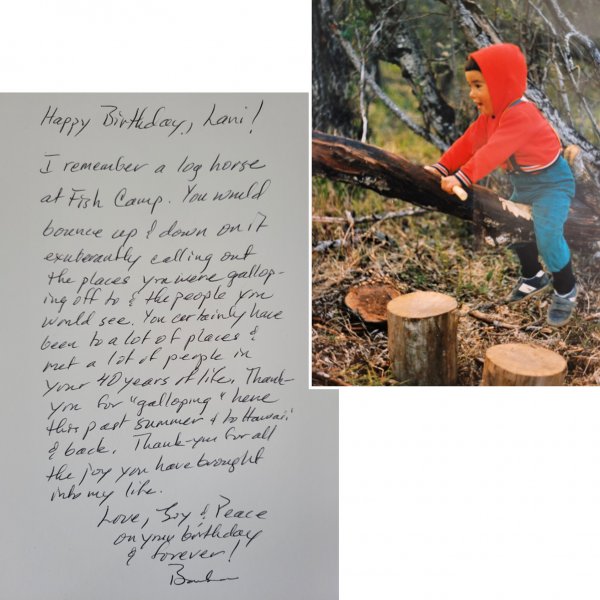 Happy Birthday, Lani!
I remember a log horse
at Fish Camp. You would
bounce up & down on it
exuberantly calling out
the places you were gallop-
ing off to & the people you
would see. You certainly have
been to a lot of places &
met a lot of people in
your 40 years of life. Thank-
you for "galloping" here
this past summer & to Hawaii
& back. Thank-you for all
the joy you have brought
into my life.
Love, Joy & Peace
on your birthday
& forever!